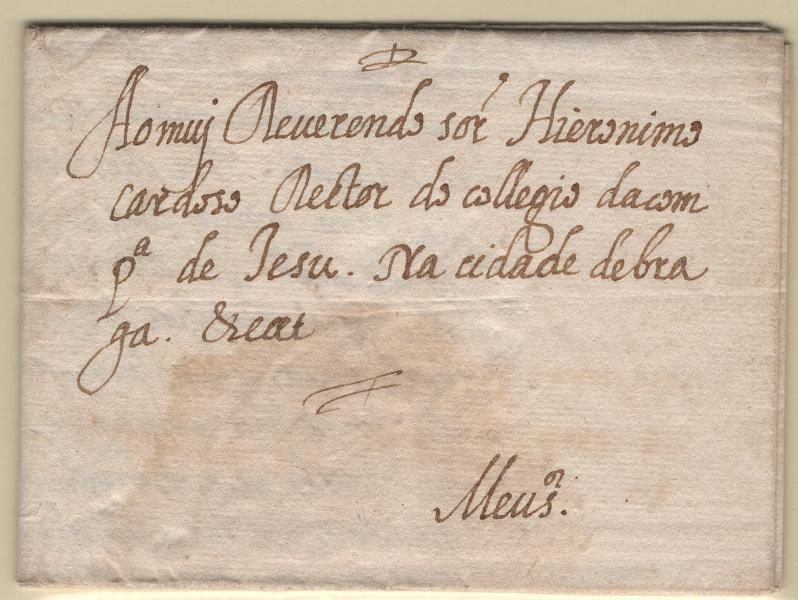 Ao muj Reuerendo sor Hieronimo
cardoso Rector do collegio da com
pª de Jesu. Na cidade de bra
ga. &cæt
Meu sor.